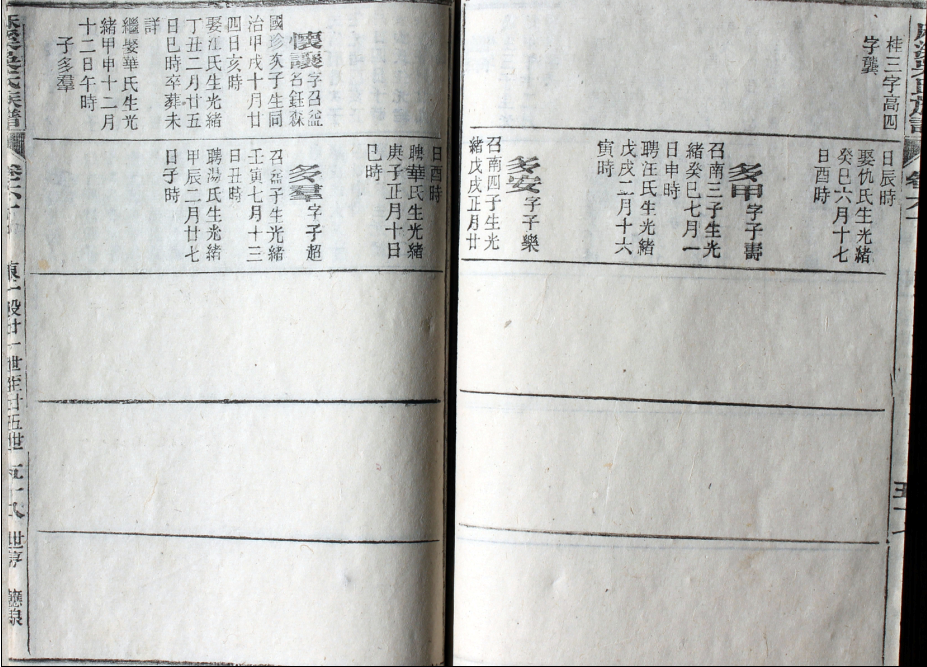 桂三字高四
字龔
日辰時
娶仇氏生光緒
癸巳六月十七
日酉時
多甲字子壽
召南三子生光
緒癸巳七月一
日申時
聘汪氏生光緒
戊戌二月十六
寅時
多安字子樂
召南四子生光
緒戊戌正月廿
日酉時
聘華氏生光緒
庚子正月十日
巳時
懷讓字召益
名鈺森
國珍亥子生同
治甲戌十月廿
四日亥時
娶汪氏生光緒
丁丑二月廿五
日巳時卒葬未
詳
繼娶華氏生光
緒甲申十二月
十二日午時
子多羣
多羣字子超
召益子生光緒
壬寅七月十三
日丑時
聘湯氏生光緒
甲辰二月廿七
日子時
東 一 設廿一世至廿五世
五十八